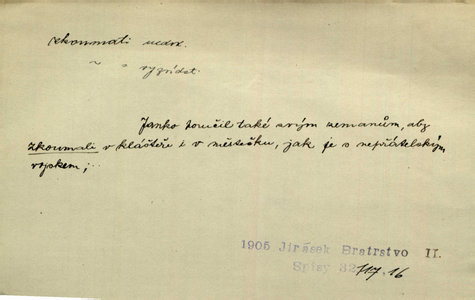 zkoumati nedok.
~ s vyzvídat.
Janko poručil také svým zemanům, aby
zkoumali v klášteře i v městečku, jak je s nepřátelským
vojskem;
1905 Jirásek Bratrstvo II.
Spisy 32 117.16